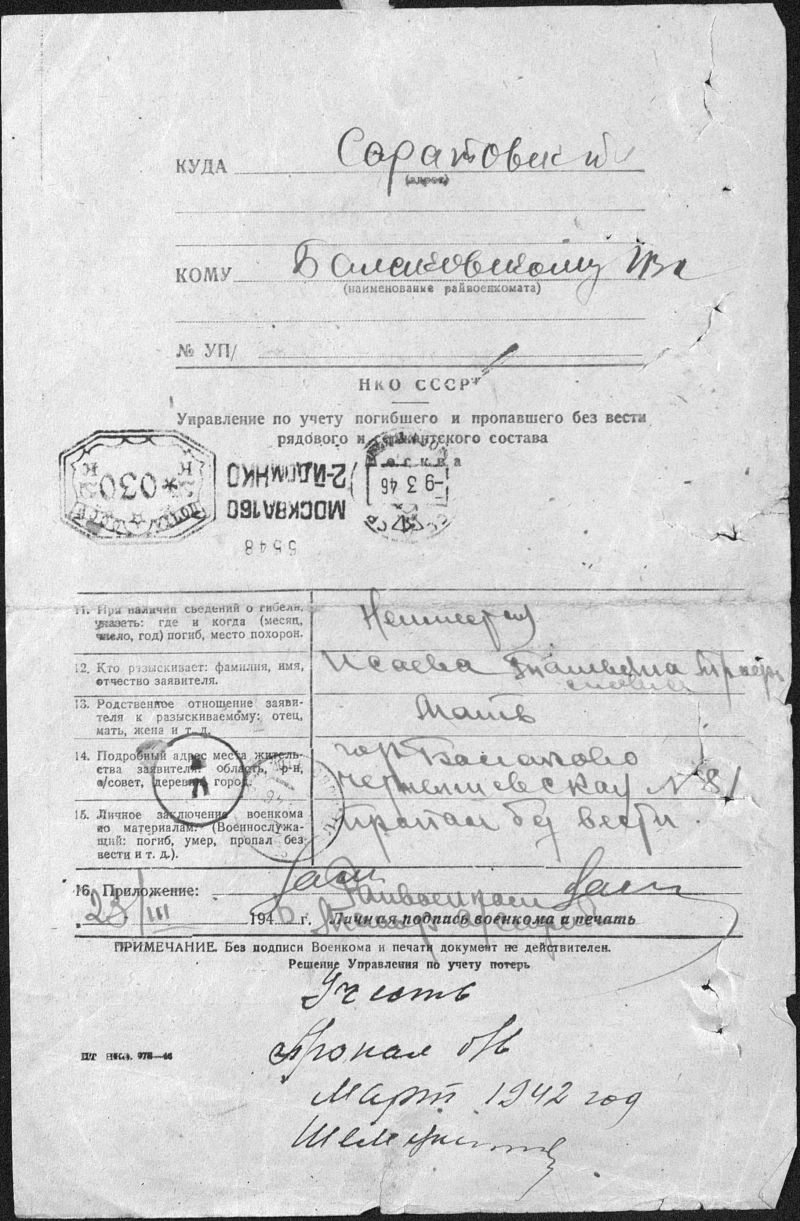 КУДА Саратовский
(адрес)
КОМУ Балаковскому РВК
(наименование райвоенкомата)
№ УП/
НКО СССР
Управление по учету погибшего и пропавшего без вести
рядового и сержантского состава
Москва
030
К К
ПОЧТА СССР
МОСКВА 160
2-Й ДОМ НКО
-9 3 46
5548
11. При наличии сведений о гибели, указать: где и когда (месяц, число, год) погиб, место похорон.
Не имеется
12. Кто разыскивает: фамилия, имя, отчество заявителя.
Исаева Татьяна
13. Родственное отношение заявителя к разыскиваемому: отец, мать, жена и т. д.
Мать
14. Подробный адрес места жительства заявителя: область, р-н, с/совет, деревня, город.
гор. Балаково
Чернышевская № 81
15. Личное заключение военкома по материалам: (Военнослужащий: погиб, умер, пропал без вести и т. д.).
Пропал без вести.
16. Приложение:
Райвоенком
23/III 1946 г. Личная подпись военкома и печать
Майор
ПРИМЕЧАНИЕ. Без подписи Военкома и печати документ не действителен.
Решение Управления по учету потерь
Учесть
Пропал б/в
Март 1942 год
ПТ НКО. 978—46